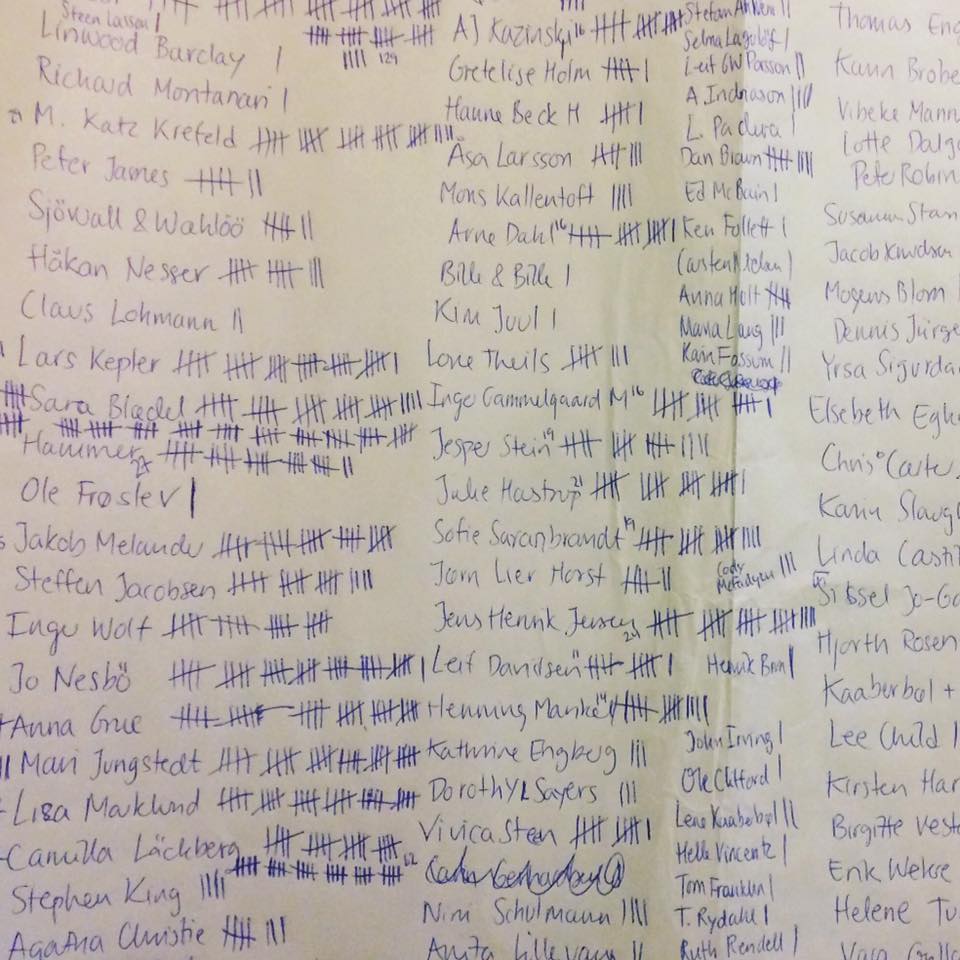 Steen Lassen
Linwood Barclay
Richard Montanari
M. Katz Krefeld
Peter James
Sjöwall & Wahlöö
Håkan Nesser
Claus Lohmann
Lars Kepler
Sara Blædel
Hammer
Ole Frøslev
Jakob Melander
Steffen Jacobsen
Inger Wolf
Jo Nesbö
Anna Grue
Mari Jungstedt
Liza Marklund
Camilla Läckberg
Stephen King
Agatha Christie
129
AJ Kazinski 16
Gretelise Holm
Hanne Beck H
Åsa Larsson
Mons Kallentoft
Arne Dahl 16
Bille & Bille
Kim Juul
Lone Theils
Inger Gammelgaard M 16
Jesper Stein 19
Julie Hastrup 21
Sofie Sarenbrandt 19
Jørn Lier Horst
Jens Henrik Jensen 24
Leif Davidsen 11
Henning Mankell 14
Kathrine Engberg
Dorothy L Sayers
Viveca Sten
Nini Schulmann
Anita Lille
Stefan Ahnhem
Selma Lagerlöf
Leif GW Persson
A. Indriðason
L. Padura
Dan Brown
Ed McBain
Ken Follett
Anna Holt
Maria Lang
Karin Fossum
Cody McFadyen
Henrik Brun
John Irving
Ole Clifford
Lene Kaaberbøl
Helle Vincentz
Tom Franklin
T. Rydahl
Ruth Rendell
Thomas Eng
Karin Brobe
Vibeke Mann
Lotte Dalg
Peter Robin
Susanne Stan
Jacob Knudsen
Mogens Blom
Dennis Jürge
Yrsa Sigurda
Elsebeth Egh
Chris Carter
Karin Slaug
Linda Casti
Sissel Jo-Ga
Hjorth Rosen
Kaaberbøl +
Lee Child
Kirsten Har
Birgitte Vest
Erik Wekse
Helene Tu